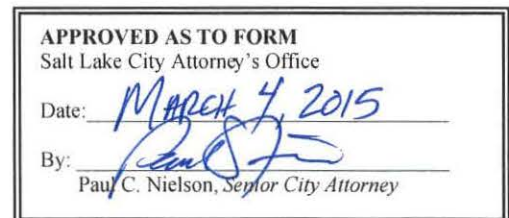 APPROVED AS TO FORM
Salt Lake City Attorney's Office
Date: MARCH 4, 2015
By:
Paul C. Nielson, Senior City Attorney